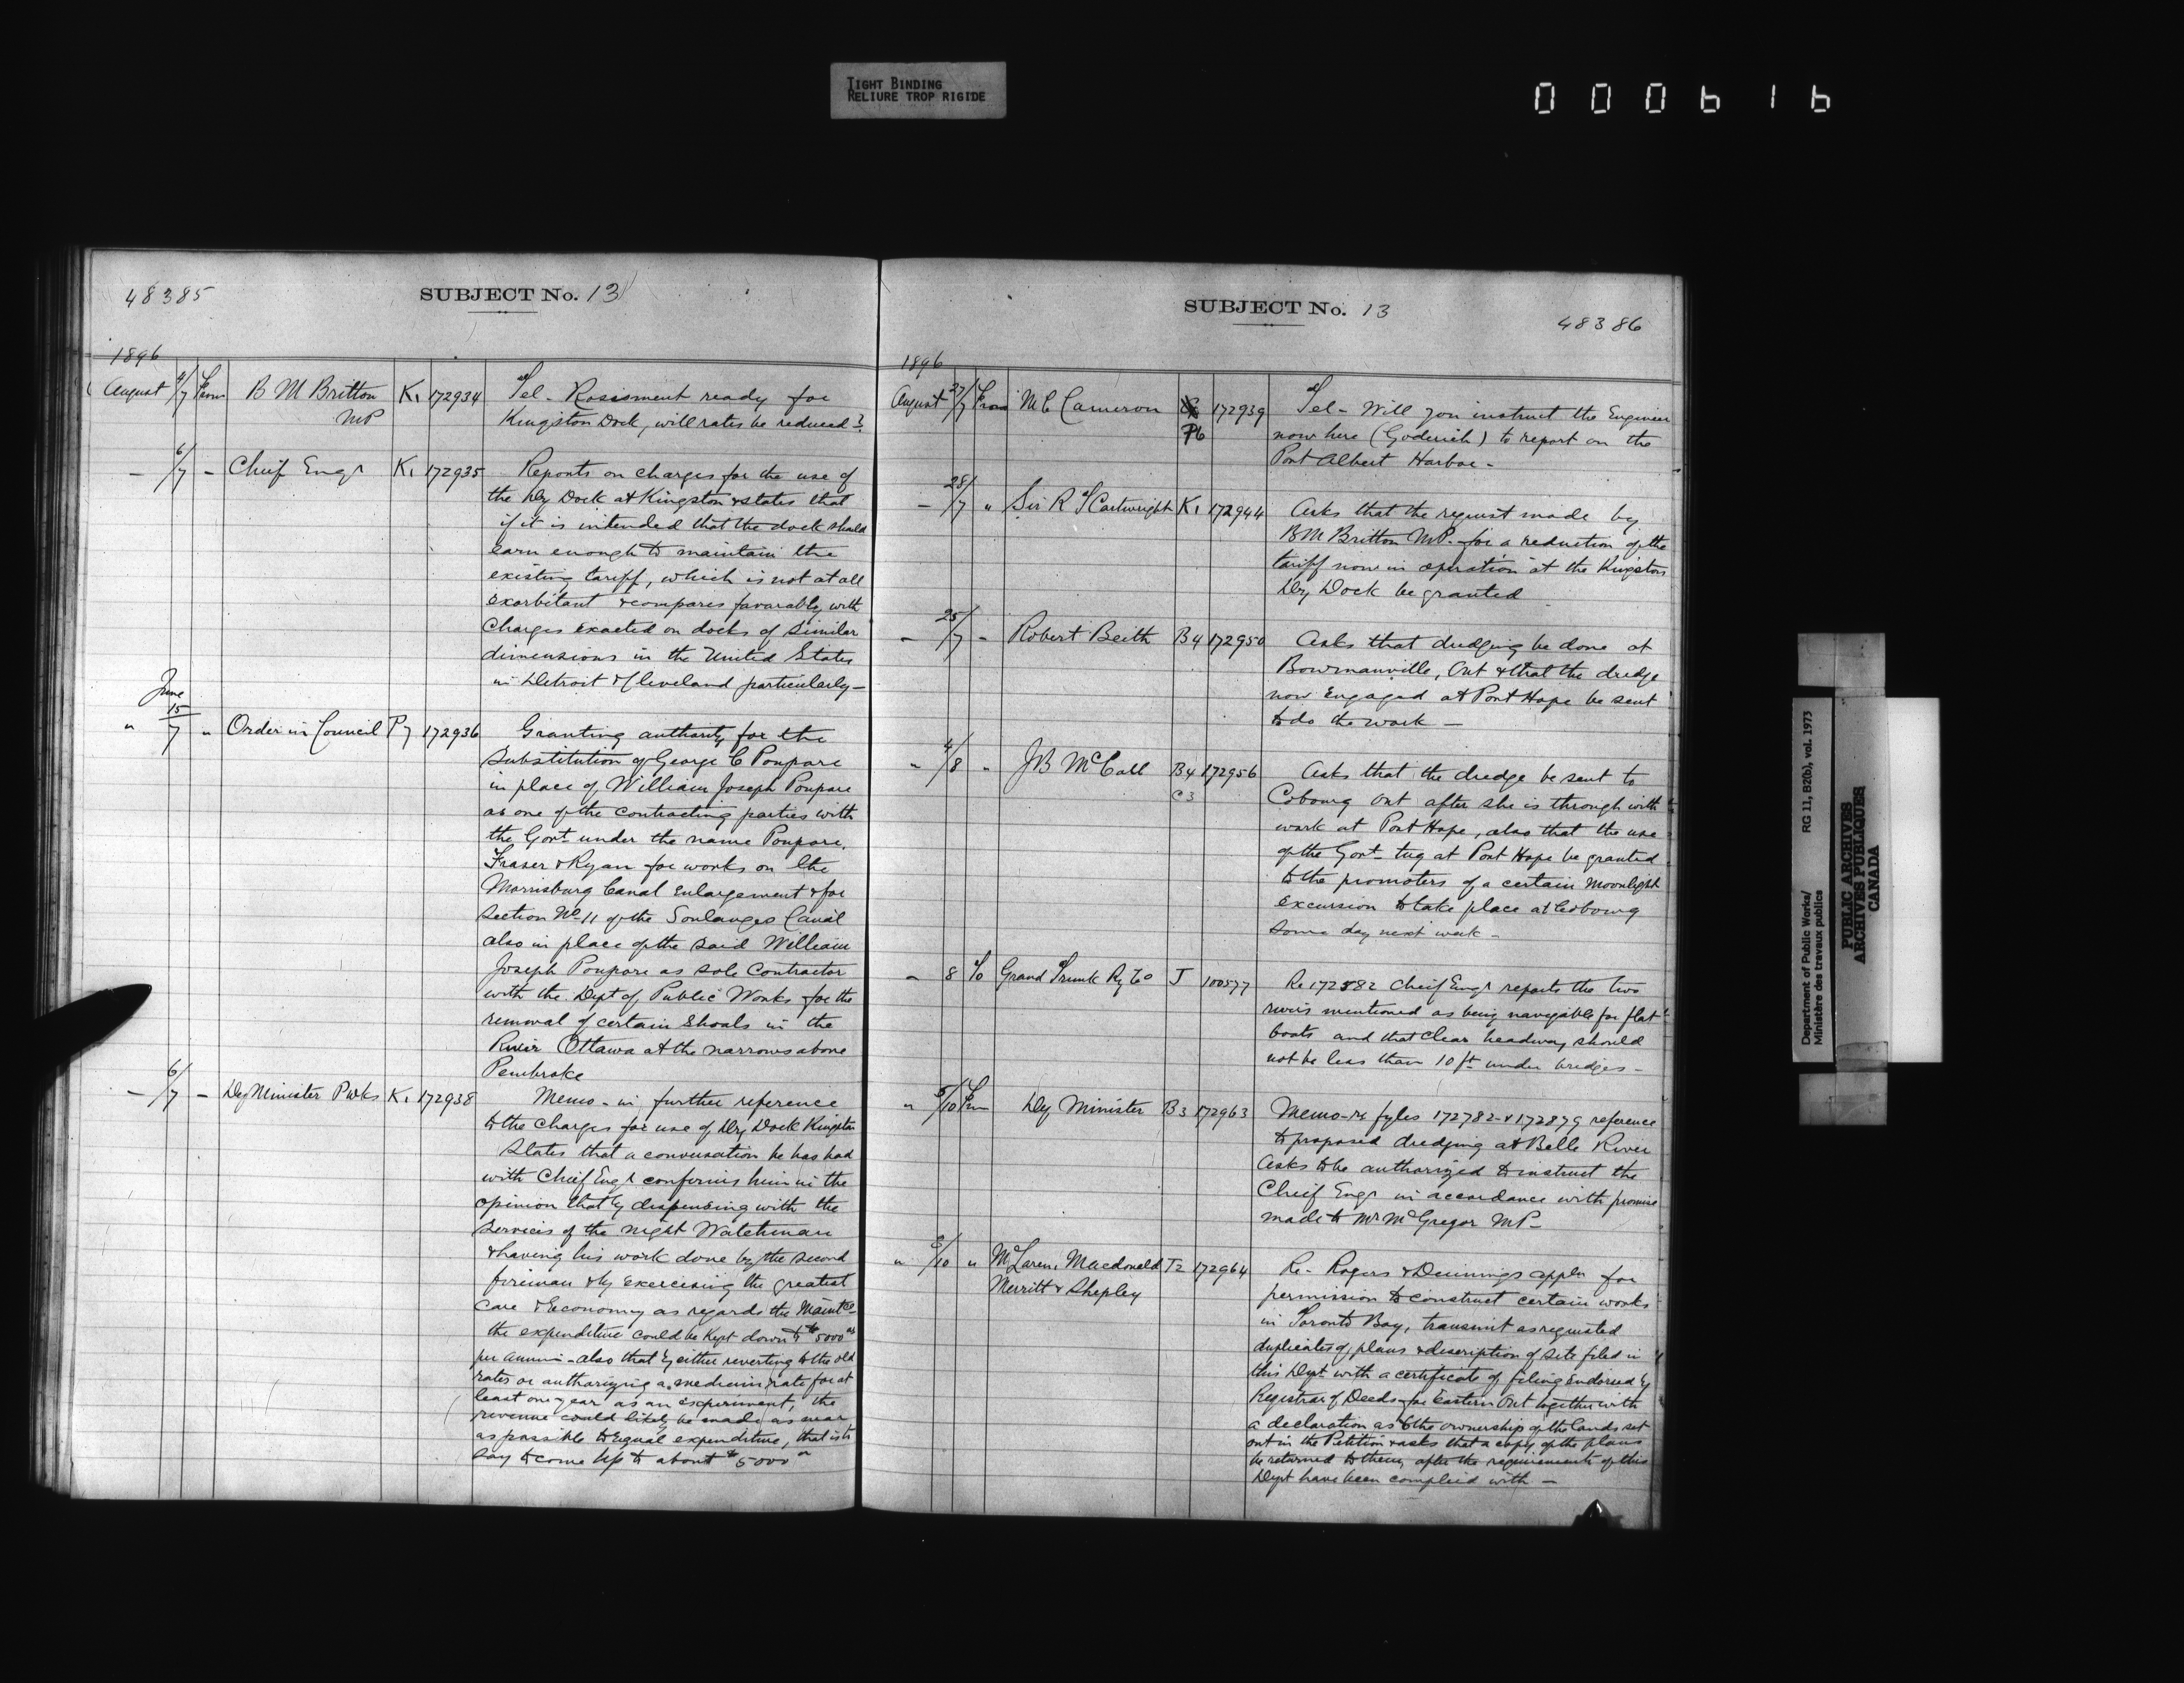 TIGHT BINDING
RELIURE TROP RIGIDE
000616
48385
SUBJECT No. 13
1896
August 4/7 From B M Britton MP K1 172934
Tel - Rossmont ready for
Kingston Dock, will rates be reduced?
— 6/7 - Chief Engr K1 172935
Reports on charges for the use of
the Dry Dock at Kingston & states that
if it is intended that the dock should
earn enough to maintain the
existing tariff, which is not at all
exorbitant & compares favorably with
charges exacted on docks of similar
dimensions in the United States
in Detroit & Cleveland particularly -
" June 15/7 " Order in Council P7 172936
Granting authority for the
Substitution of George C Poupore
in place of William Joseph Poupore
as one of the contracting parties with
the Govt under the name Poupore,
Fraser & Ryan for works on the
Morrisburg Canal Enlargement & for
Section No 11 of the Soulanges Canal
also in place of the said William
Joseph Poupore as sole Contractor
with the Dept of Public Works for the
removal of certain Shoals in the
River Ottawa at the narrows above
Pembroke
— 6/7 - Dy Minister P Wks K1 172938
Memo - in further reference
to the charges for use of Dry Dock Kingston
States that a conversation he has had
with Chief Engr confirms him in the
opinion that by dispensing with the
Services of the night Watchman
& having his work done by the second
fireman & by exercising the greatest
Care & Economy as regards the Maintce
the expenditure could be kept down to $5000 00
per annum - also that by either reverting to the old
rates or authorizing a medium rate for at
least one year as an experiment, the
revenue could likely be made as near
as possible to equal expenditure, that is to
say to come up to about $5000 00
SUBJECT No. 13
48386
1896
August 27/7 From M C Cameron P6 172939
Tel - Will you instruct the Engineer
now here (Goderich) to report on the
Port Albert Harbor -
— 28/7 " Sir R J Cartwright K1 172944
Asks that the request made by
B M Britton MP. for a reduction of the
tariff now in operation at the Kingston
Dry Dock be granted
— 25/7 - Robert Beith B4 172950
Asks that dredging be done at
Bowmanville, Ont & that the dredge
now Engaged at Port Hope be sent
to do the work —
" 4/8 " J B McColl B4 C3 172956
Asks that the dredge be sent to
Cobourg Ont after she is through with
work at Port Hope, also that the use
of the Govt tug at Port Hope be granted
to the promoters of a certain Moonlight
Excursion to take place at Cobourg
some day next week -
- 8 To Grand Trunk Ry Co J 100577
Re 172582 Chief Engr reports the two
rivers mentioned as being navigable for flat
boats and that clear headway should
not be less than 10 ft under bridges -
" 5/10 Frm Dy Minister B3 172963
Memo - re fyles 172782 - & 172879 reference
to proposed dredging at Belle River
Asks to be authorized to instruct the
Chief Engr in accordance with promise
made to Mr McGregor MP -
" 5/10 " McLaren, Macdonald T2 172964
Merritt & Shepley
Re - Rogers & Dennings appln for
permission to construct certain works
in Toronto Bay, transmit as requested
duplicates of plans & description of site filed in
this Dept with a certificate of filing Endorsed by
Registrar of Deeds for Eastern Ont together with
a declaration as to the ownership of the lands set
out in the Petition & asks that a copy of the plans
be returned to them, after the requirements of this
Dept have been complied with —
Department of Public Works/ RG 11, B2(b), vol. 1973
Ministère des travaux publics
PUBLIC ARCHIVES
ARCHIVES PUBLIQUES
CANADA